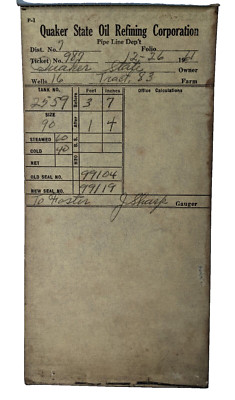 P-1
Quaker State Oil Refining Corporation
Pipe Line Dep't
Dist. No. 7 Folio
Ticket No. 982 12-26 1961
Quaker State Owner
Wells 16 Tract, 83 Farm
TANK NO. Feet Inches Office Calculations
2559 Before 3 7
SIZE
90 After 1 4
STEAMED 60
COLD 40
NET
OLD SEAL NO. 99104
NEW SEAL NO. 99119
To Foster J Sharp Gauger